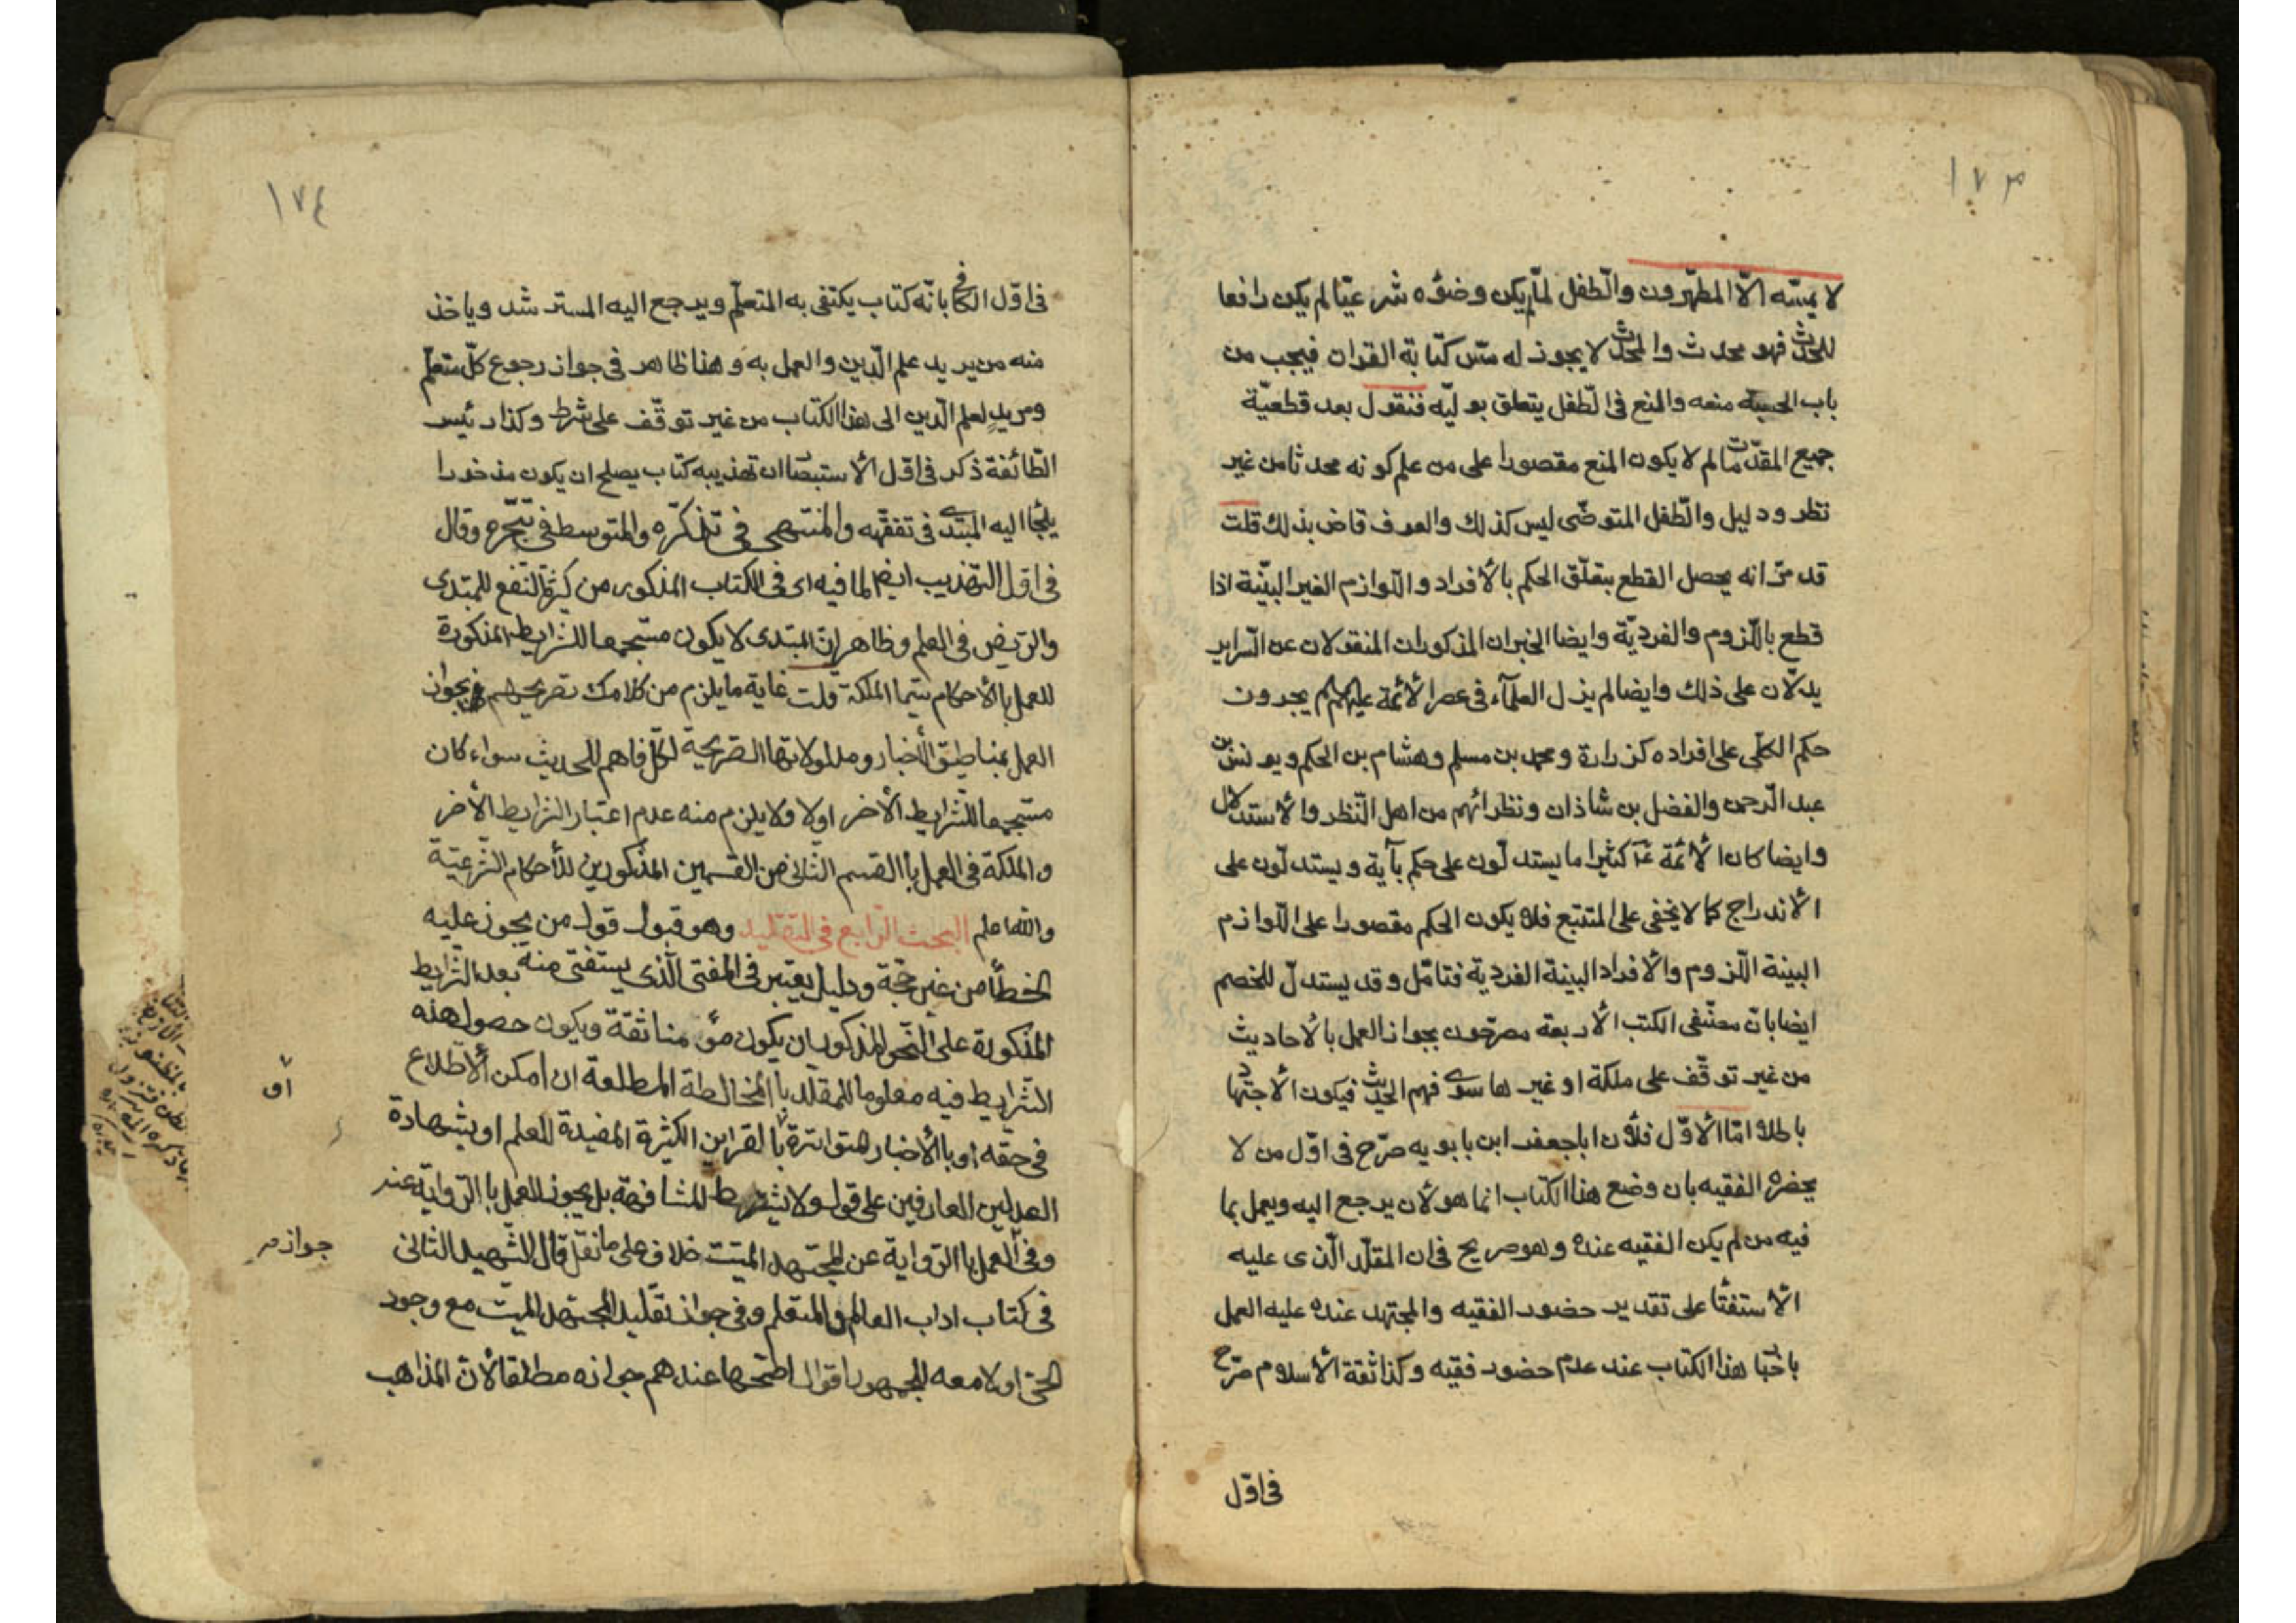 ١٧٣
لا يمسّه الّا المطهّرون والّطفل لمّا لم يكن وضوءه شرعيّا لم يكن رافعا
للحدث فهو محدث والمحدث لا يجوز له مسّ كتابة القران فيجب من
باب الحسبة منعه والمنع فى الّطفل يتعلق بوليّه فنقول بعد قطعيّة
جميع المقدّمات لم لا يكون المنع مقصورا على من علم كونه محدثا من غير
نظر ودليل والّطفل المتوضّى ليس كذلك والعرف قاض بذلك قلت
قد مرّ انه يحصل القطع بتعلّق الحكم بالأفراد والّلوازم الغير البيّنة اذا
قطع بالّلزوم والفرديّة وايضا الخبران المذكوران المنقولان عن السّراير
يدلّان على ذلك وايضا لم يزل العلمآء فى عصر الأئمة عليهم يجرون
حكم الكلّى على افراده كزرارة ومحمد بن مسلم وهشام بن الحكم ويونس بن
عبد الّرحمن والفضل بن شاذان ونظرائهم من اهل الّنظر والأستدلال
وايضا كان الأئمة ع كثيرا ما يستدلّون على حكم بآية ويستدلّون على
الأندراج كما لا يخفى على المتتبع فلا يكون الحكم مقصورا على الّلوازم
البينة الّلزوم والأفراد البينة الفردية فتامّل وقد يستدلّ للخصم
ايضا بانّ مصنّفى الكتب الأربعة مصرّحون بجواز العمل بالأحاديث
من غير توقّف على ملكة او غيرها سوى فهم الحديث فيكون الأجتهاد
باطلا امّا الأوّل فلأن ابا جعفر ابن بابويه صرّح فى اوّل من لا
يحضره الفقيه بان وضع هذا الكتاب انما هو لأن يرجع اليه ويعمل بما
فيه من لم يكن الفقيه عنده وهو صريح فى ان المقلّد الّذى عليه
الأستفتا على تقدير حضور الفقيه والمجتهد عنده عليه العمل
باخبار هذا الكتاب عند عدم حضور فقيه وكذا ثقة الأسلام صرّح
فى اوّل
١٧٤
فى اوّل الكافى بانّه كتاب يكتفى به المتعلّم ويرجع اليه المسترشد وياخذ
منه من يريد علم الّدين والعمل به وهذا ظاهر فى جواز رجوع كلّ متعلّم
ومريد لعلم الّدين الى هذا الكتاب من غير توقّف على شرط وكذا رئيس
الطّائفة ذكر فى اوّل الأستبصار ان تهذيبه كتاب يصلح ان يكون مذخورا
يلجا اليه المبتدى فى تفقّهه والمنتهى فى تذكّره والمتوسط فى تبحّره وقال
فى اوّل التهذيب ايضا لما فيه اى فى الكتاب المذكور من كثرة النّفع للمبتدى
والرّيض فى العلم وظاهر انّ المبتدى لا يكون مستجمعا للشرايط المذكورة
للعمل بالأحكام سيّما الملكة قلت غاية ما يلزم من كلامك تصريحهم بجواز
العمل بمناطيق الأخبار ومدلولاتها الصّريحة لكلّ فاهم للحديث سواء كان
مستجمعا للشّرايط الأخر اولا ولا يلزم منه عدم اعتبار الشرايط الأخر
والملكة فى العمل باالقسم الثّانى من القسمين المذكورين للأحكام الشّرعيّة
والله اعلم البحث الرّابع فى التقليد وهو قبول قول من يجوز عليه
الخطأ من غير حجّة ودليل يعتبر فى المفتى الّذى يستفتى منه بعد الشّرايط
المذكورة على النّحو المذكور ان يكون مؤمنا ثقة ويكون حصول هذه
الشّرايط فيه معلوما للمقلّد باالمخالطة المطلعة ان امكن الأطّلاع
فى حقّه او باالأخبار المتواترة باالقراين الكثيرة المفيدة للعلم او بشهادة
العدلين العارفين على قول ولا يشترط المشافهة بل يجوز العمل باالرّواية عنه
وفى العمل باالرّواية عن المجتهد الميّت خلاف على ما نقل قال الشّهيد الثّانى
فى كتاب اداب العالم والمتعلم وفى جواز تقليد المجتهد الميّت مع وجود
الحىّ اولا معه للجمهور اقوال اصحّها عندهم جوازه مطلقا لأنّ المذاهب
او
جواز